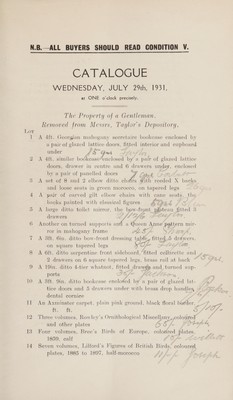 N.B.—ALL BUYERS SHOULD READ CONDITION V.
CATALOGUE
WEDNESDAY, JULY 29th, 1931,
at ONE o'clock precisely.
The Property of a Gentleman,
Removed from Messrs. Taylor's Depository,
Lot
1 A 4ft. Georgian mahogany secretaire bookcase enclosed by
a pair of glazed lattice doors, fitted interior and cupboard
under
2 A 4ft. similar bookcase enclosed by a pair of glazed lattice
doors, drawer in centre and 6 drawers under, enclosed
by a pair of panelled doors
3 A set of 8 and 2 elbow ditto chairs with reeded X backs
and loose seats in green moreen, on tapered legs
4 A pair of carved gilt elbow chairs with cane seats, the
backs painted with classical figures
5 A large ditto toilet mirror, the bow-front platform fitted 3
drawers
6 Another on turned supports and a Queen Anne pattern mir-
ror in mahogany frames
7 A 3ft. 8in. ditto bow-front dressing table, fitted 3 drawers
on square tapered legs
8 A 6ft. ditto serpentine front sideboard, fitted cellarette and
2 drawers on 6 square tapered legs, brass rail at back
9 A 19in. ditto 4-tier whatnot, fitted drawer and turned sup-
ports
10 A 3ft. 9in. ditto bookcase enclosed by a pair of glazed lat-
tice doors and 3 drawers under with brass drop handles
dental cornice
11 An Axminster carpet, plain pink ground, black floral border
ft. ft.
12 Three volumes, Rowley's Ornithological Miscellany, coloured
and other plates
13 Four volumes, Bree's Birds of Europe, coloured plates,
1859, calf
14 Seven volumes, Lilford's Figures of British Birds, coloured
plates, 1885 to 1897, half-morocco
Joseph